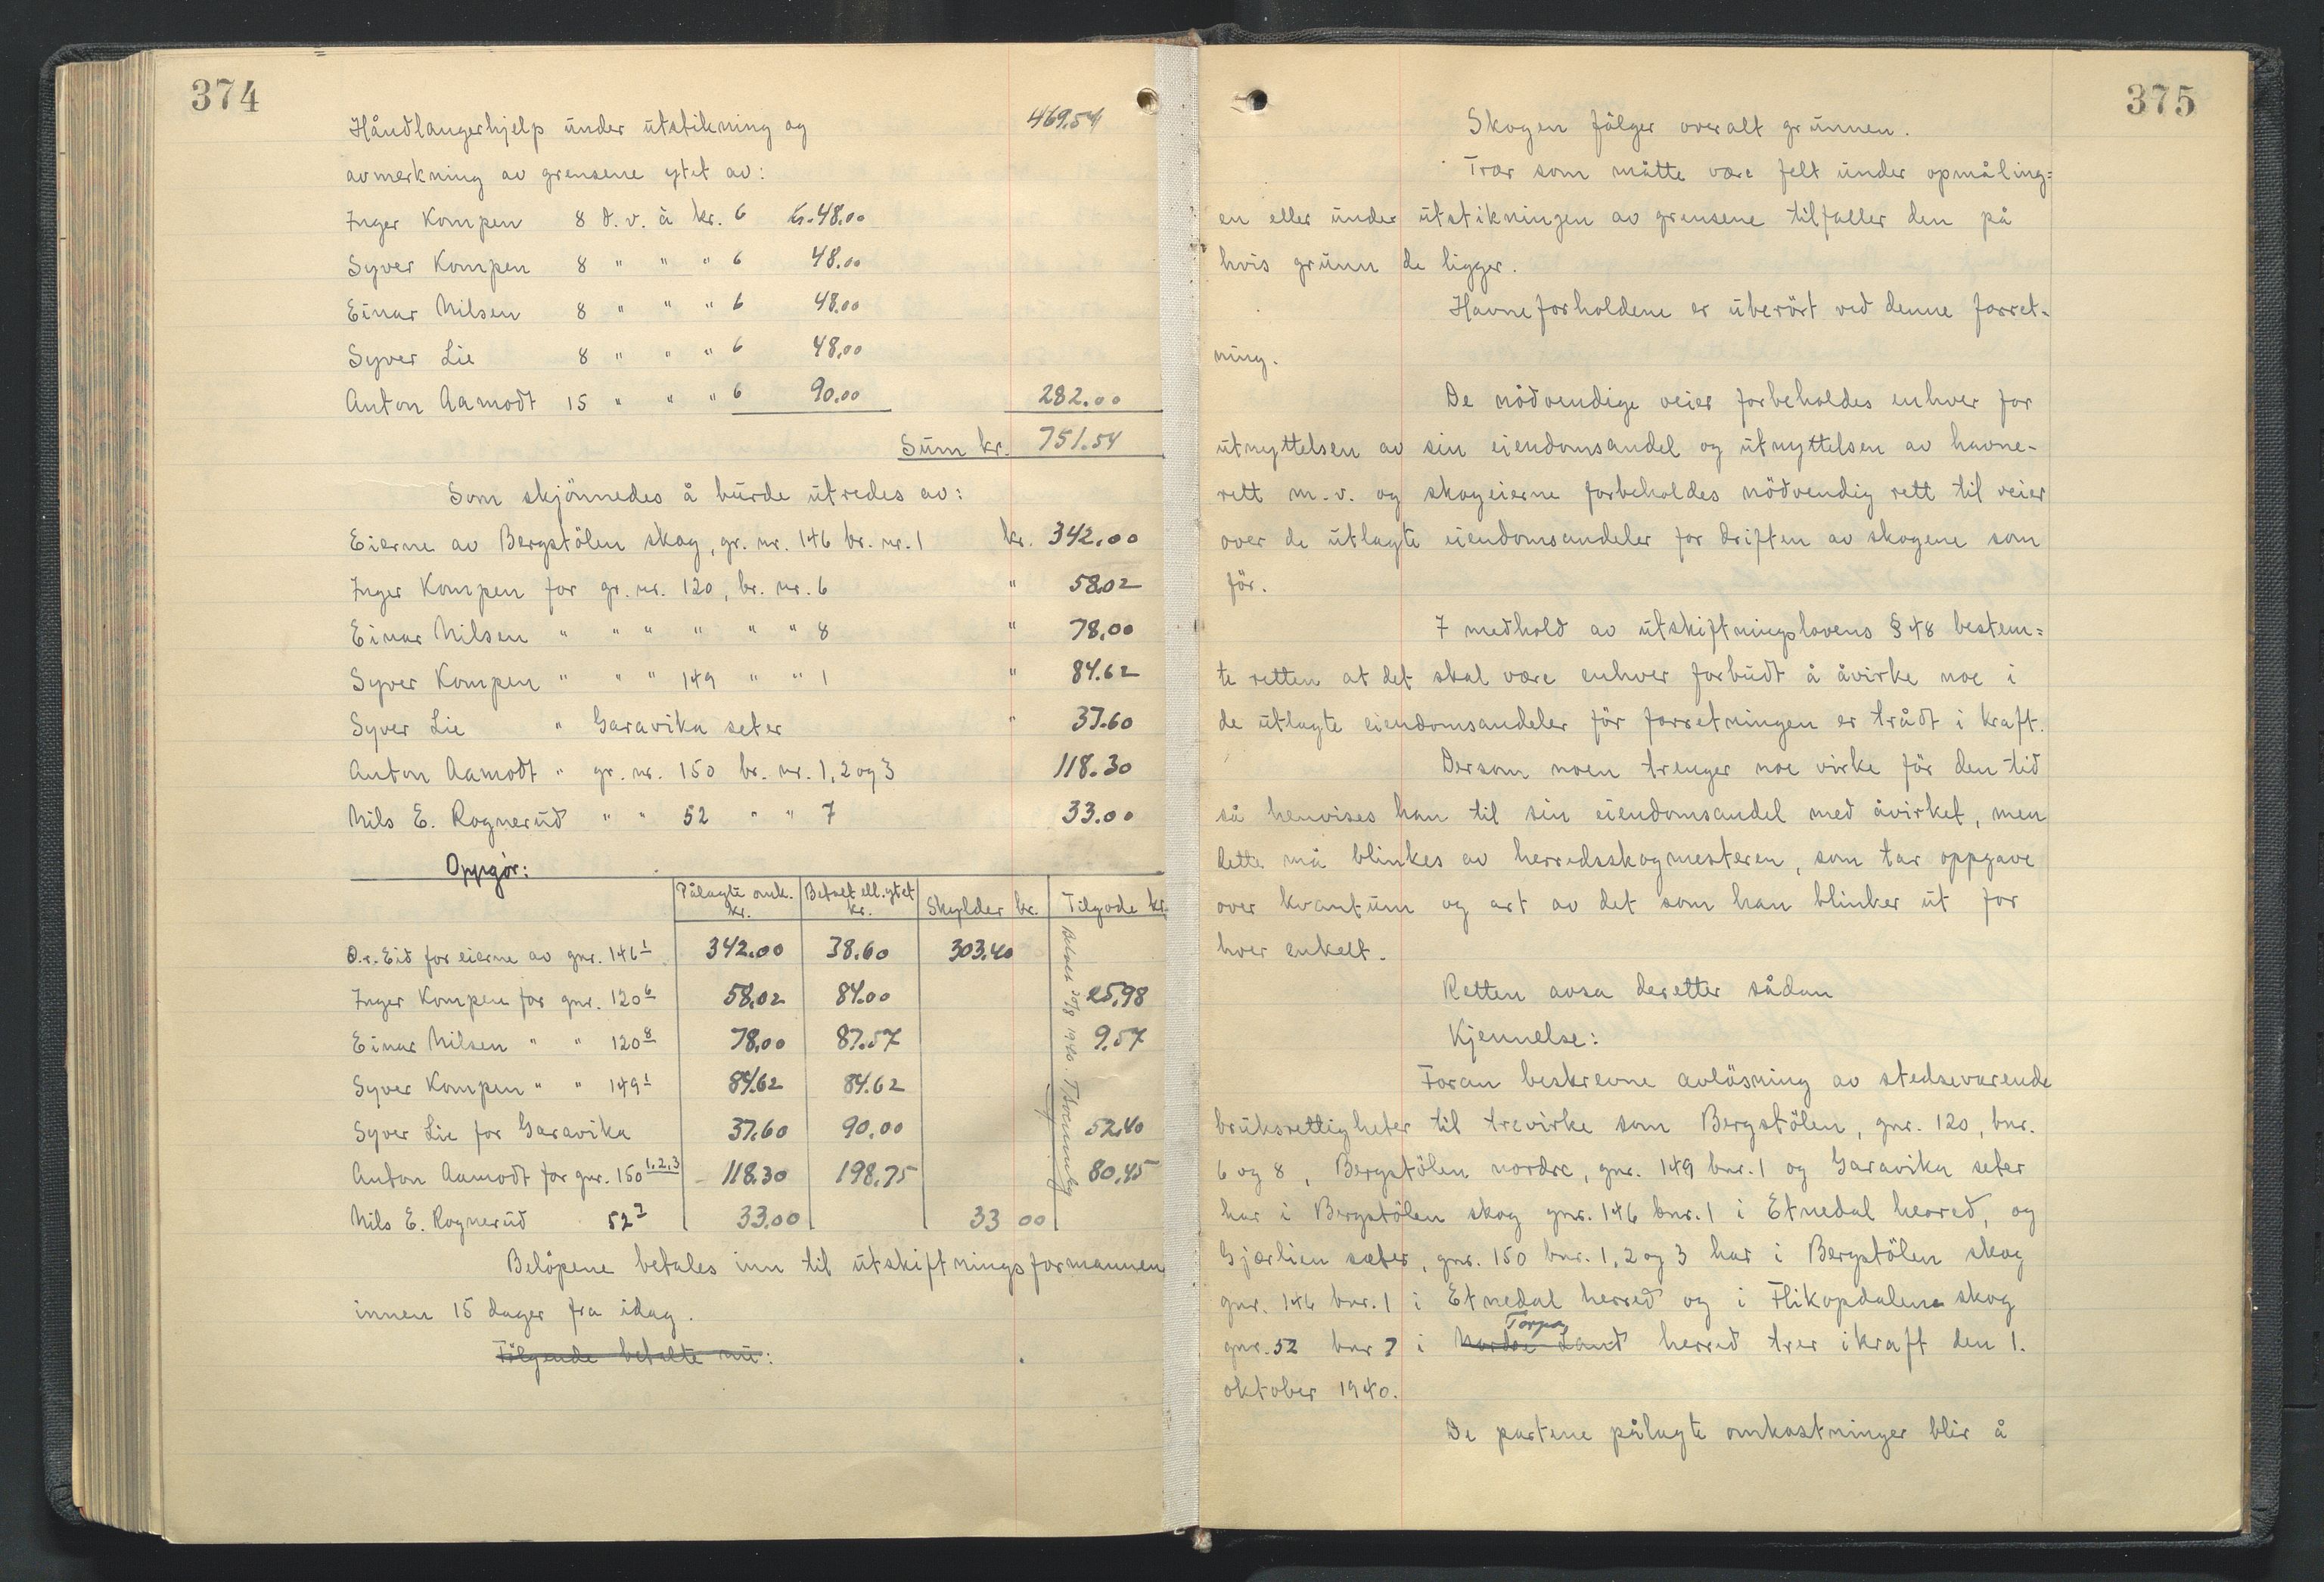 374
469.54
Håndlangerhjelp under utstikning og
avmerkning av grensene ytet av:
Inger Kompen 8 d.v. à kr. 6 kr. 48.00
Syver Kompen 8 " " " 6 48.00
Einar Nilsen 8 " " " 6 48.00
Syver Lie 8 " " " 6 48.00
Anton Aamodt 15 " " " 6 90.00 282.00
Sum kr. 751.54
Som skjönnedes å burde utredes av:
Eierne av Bergstölen skog, gr. nr. 146 br. nr. 1 kr. 342.00
Inger Kompen for gr. nr. 120, br. nr. 6 " 58.02
Einar Nilsen " " " " " " 8 " 78.00
Syver Kompen " " " 149 " " 1 " 84.62
Syver Lie " Garavika seter " 37.60
Anton Aamodt " gr. nr. 150 br. nr. 1, 2 og 3 118.30
Nils E. Rognerud " " 52 " " 7 33.00
Oppgjör:
Pålagte omk. kr. Betalt ell. ytet kr. Skylder kr. Tilgode kr.
O.r. Eid for eierne av gnr. 146 1 342.00 38.60 303.40
Inger Kompen for gnr. 120 6 58.02 84.00 25.98
Einar Nilsen " " 120 8 78.00 87.57 9.57
Syver Kompen " " 149 1 84.62 84.62
Syver Lie for Garavika 37.60 90.00 52.40
Anton Aamodt for gnr. 150 1,2,3 118.30 198.75 80.45
Nils E. Rognerud 52 7 33.00 33 00
Belöpene betales inn til utskiftningsformannen
innen 15 dager fra idag.
Fölgende betalte nu:
375
Skogen fölger overalt grunnen.
Trær som måtte være felt under opmåling=
en eller under utstikningen av grensene tilfaller den på
hvis grunn de ligger.
Havneforholdene er uberört ved denne forret-
ning.
De nödvendige veier forbeholdes enhver for
utnyttelsen av sin eiendomsandel og utnyttelsen av havne-
rett m.v. og skogeierne forbeholdes nödvendig rett til veier
over de utlagte eiendomsandeler for driften av skogene som
för.
I medhold av utskiftningslovens § 48 bestem=
te retten at det skal være enhver forbudt å åvirke noe i
de utlagte eiendomsandeler för forretningen er trådt i kraft.
Dersom noen trenger noe virke för den tid
så henvises han til sin eiendomsandel med åvirket, men
dette må blinkes av herredsskogmesteren, som tar oppgave
over kvantum og art av det som han blinker ut for
hver enkelt.
Retten avsa deretter sådan
Kjennelse:
Foran beskrevne avlösning av stedsevarende
bruksrettigheter til trevirke som Bergstölen, gnr. 120, bnr.
6 og 8, Bergstölen nordre, gnr. 149 bnr. 1 og Garavika seter
har i Bergstölen skog gnr. 146 bnr. 1 i Etnedal herred, og
Gjærlien sæter, gnr. 150 bnr. 1, 2 og 3 har i Bergstölen skog
gnr. 146 bnr. 1 i Etnedal herred og i Flikopdalene skog
Torpa
gnr. 52 bnr 7 i Nordre Land herred trer ikraft den 1.
oktober 1940.
De partene pålagte omkostninger blir å